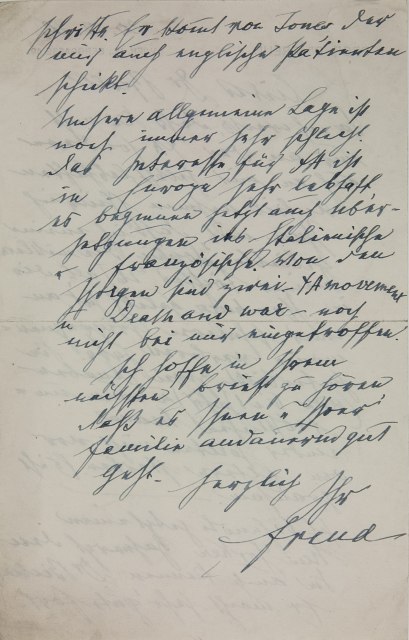 schritte. Er kommt von Jones der
mir auch englische Patienten
schickt.
Unsere allgemeine Lage ist
noch immer sehr schlecht
das Interesse für ΨA ist
in Europa sehr lebhaft
es beginnen jetzt auch Über-
setzungen ins Italienische
u Französische. Von den
Ihrigen sind zwei – ΨA movement
u Death and war – noch
nicht bei mir eingetroffen.
Ich hoffe in Ihrem
nächsten Brief zu hören
daß es Ihnen u Ihrer
Familie andauernd gut
geht.
Herzlich Ihr
Freud